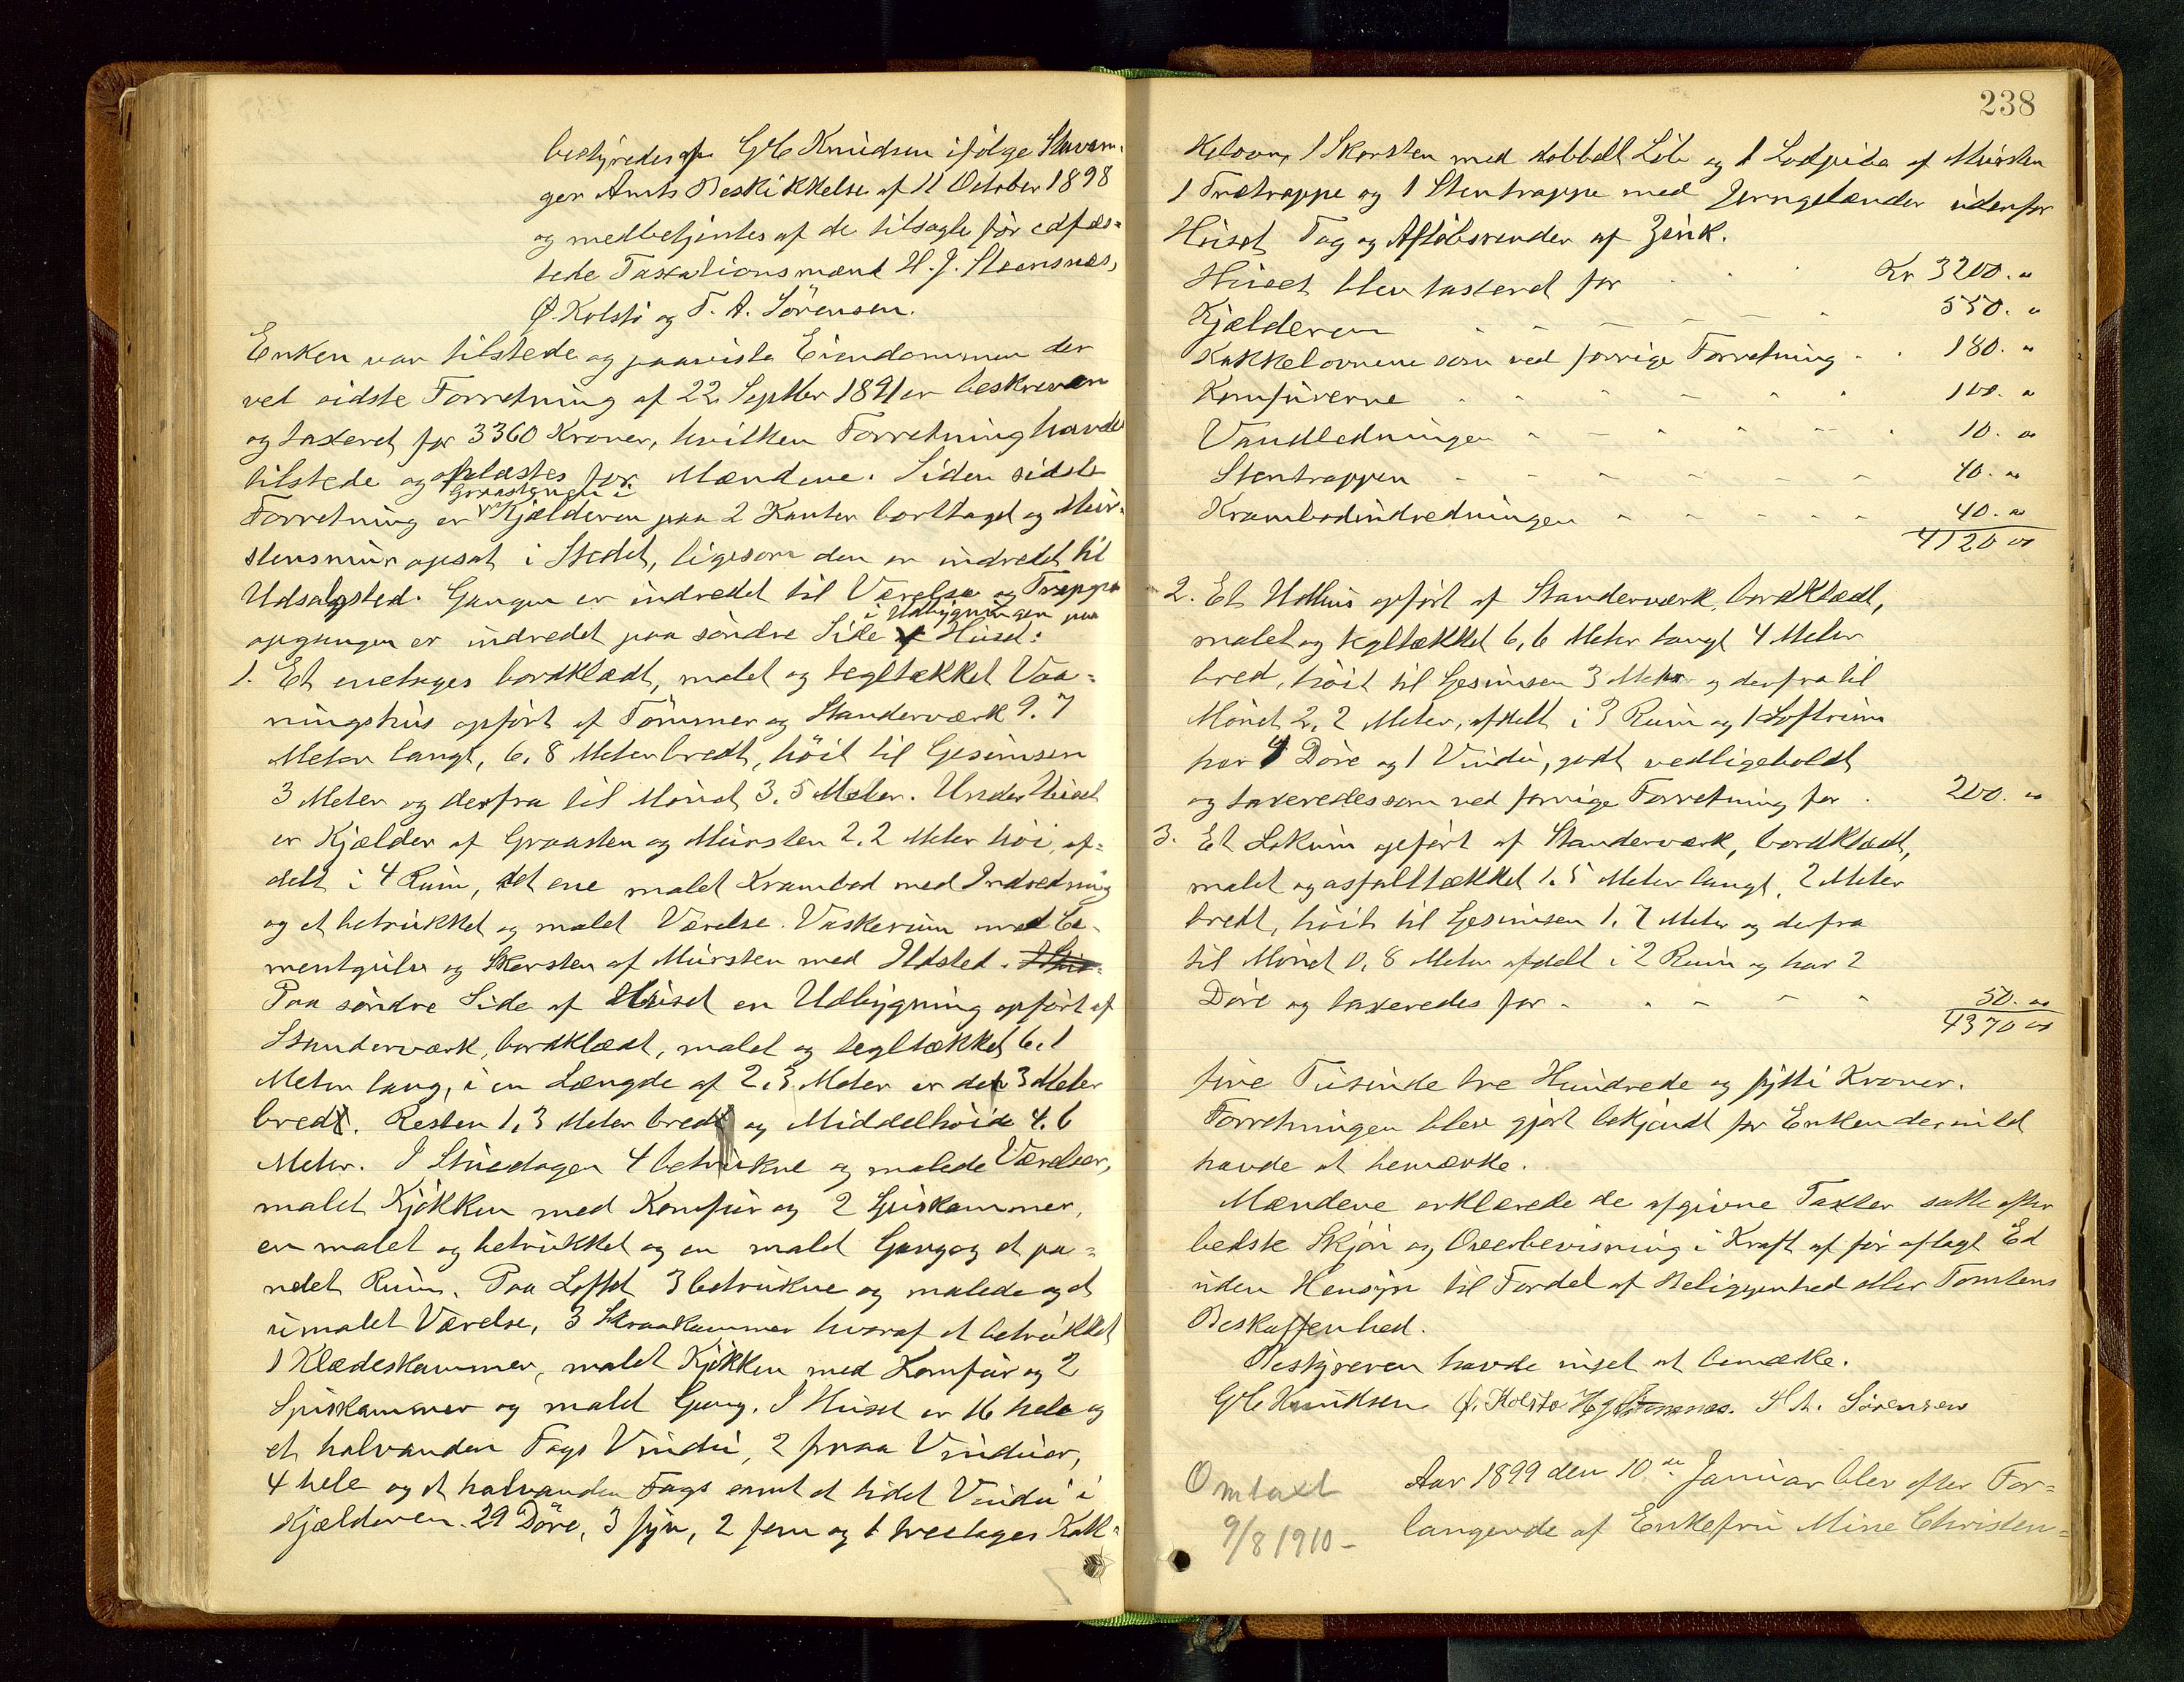 bestyredes af G C Knudsen ifølge Stavan-
ger Amts Beskikkelse af 11 October 1898
og medbetjentes af de tilsagte før edfæs-
tede Taxationsmænd H. J. Steensnæs,
Ø. Kolstø og T. A. Sørensen.
Enken var tilstede og paaviste Eiendommen der
ved sidste Forretning af 22 Septber 1891 er beskreven
og taxeret for 3360 Kroner, hvilken Forretning havdes
tilstede og oplæstes for Mændene. Siden sidste
Graastenen i
Forretning er Kjælderen paa 2 Kanter borttaget og Mur-
stensmur opsat i Stedet, ligesom den er indredet til
Udsalgsted. Gangen er indredet til Værelse og Trappe
i Udbygningen paa
opgangen er indredet paa søndre Side af Huset:
1. Et enetages bordklædt, malet og tegltækket Vaa-
ningshus opført af Tømmer og Standerværk 9.7
Meter langt, 6,8 Meter bredt, höit til Gesimsen
3 Meter og derfra til Mønet 3.5 Meter. Under Huset
er Kjælder af Graasten og Mursten 2.2 Meter høi, af-
delt i 4 Rum, det ene malet Krambod med Indredning
og et betrukket og malet Værelse. Vaskerum med Ce-
mentgulv og Skorsten af Mursten med Ildsted.
Paa søndre Side af Huset en Udbygning opført af
Standerværk, bordklædt, malet og tegltækket 6.1
Meter lang, i en Længde af 2.3 Meter er det 3 Meter
bredt. Resten 1,3 Meter bredt og Middelhøide 4.6
Meter. I Stueetagen 4 betrukne og malede Værelser,
malet Kjøkken med Komfur og 2 Spiskammer,
en malet og betrukket og en malet Gang og et pa-
nelet Rum. Paa Loftet 3 betrukne og malede og et
umalet Værelse, 3 Skraakammer hvoraf et betrukket
1 Klædeskammer, malet Kjøkken med Komfur og 2
Spiskammer og malet Gang. I Huset er 16 hele og
et halvanden Fags Vindu, 2 smaa Vinduer,
4 hele og et halvanden Fags samt et lidet Vindu i
Kjælderen. 29 Døre, 3 fyr, 2 fem og 1 treetages Kak-
238
kelovn, 1 Skorsten med dobbelt Løb og 1 Lodpibe af Mursten
1 Trætrappe og 1 Stentrappe med Jerngelænder udenfor
Huset Tag og Afløbsrender af Zink.
Huset blev taxeret for Kr 3200. "
Kjælderen 550. "
Kakkelovnene som ved forrige Forretning 180. "
Komfurerne 100. "
Vandledningen 10. "
Stentrappen 40. "
Krambodindredningen 40. "
4120 "
2. Et Udhus opført af Standerværk, bordklædt,
malet og tegltækket 6,6 Meter langt 4 Meter
bred, høit til Gesimsen 3 Meter og derfra til
Mønet 2.2 Meter, afdelt i 3 Rum og 1 Loftrum
har 4 Døre og 1 Vindu, godt vedligeholdt
og taxeredes som ved forrige Forretning for 200. "
3. Et Lokum opført af Standerværk, bordklædt,
malet og asfalttækket 1.5 Meter langt, 2 Meter
bredt, høit til Gesimsen 1.7 Meter og derfra
til Mønet 0,8 Meter afdelt i 2 Rum og har 2
Døre og taxeredes for 50. "
4370 "
fire Tusinde tre Hundrede og sytti Kroner.
Forretningen blev gjort bekjendt for Enken der intet
havde at bemærke.
Mændene erklærede de afgivne Taxter satte efter
bedste Skjøn og Overbevisning i Kraft af før aflagt Ed
uden Hensyn til Fordel af Beliggenhed eller Tomtens
Beskaffenhed.
Bestyreren havde intet at bemærke.
G C Knudsen Ø. Kolstø H J Steensnæs. T A. Sørensen
Omtaxt
9/8 1910-
Aar 1899 den 10de Januar blev efter For-
langende af Enkefru Mine Christen-